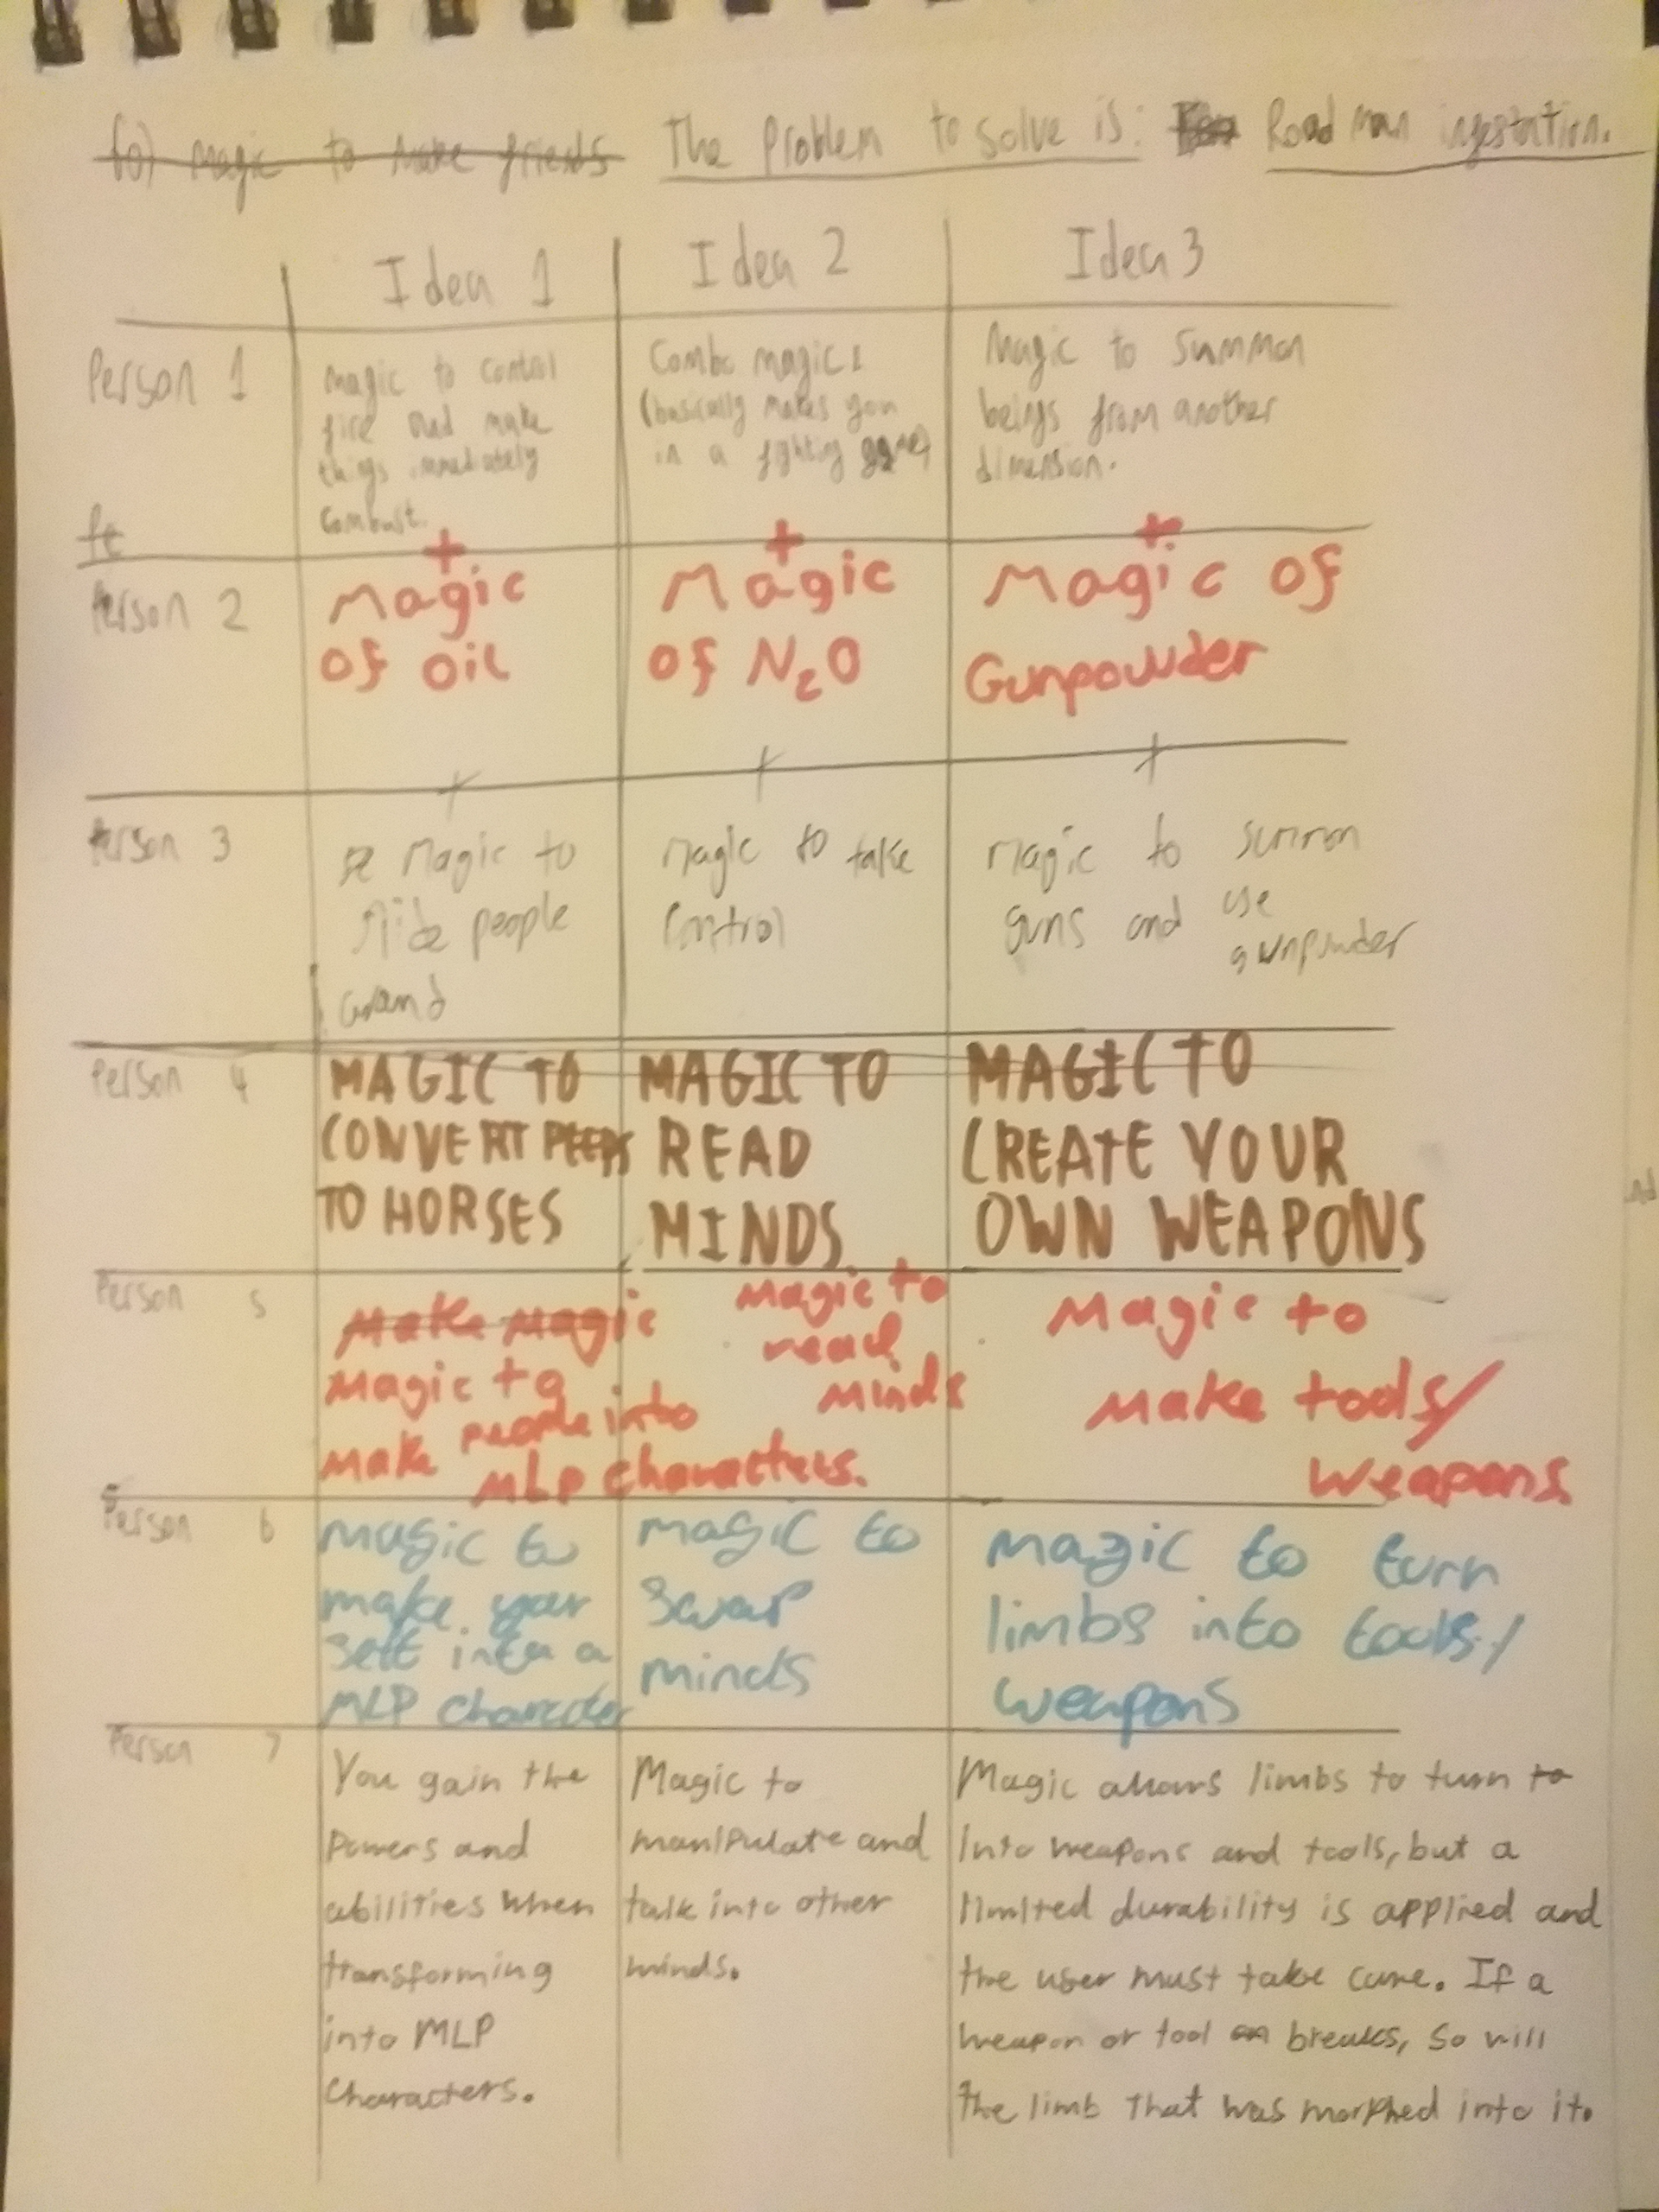 60) Magic to make friends The Problem to solve is: Road man ingestation.
Idea 1 Idea 2 Idea 3
Person 1
Magic to control
fire and make
things immediately
combust.
Combo magic
(basically makes you
in a fighting game)
Magic to summon
beings from another
dimension.
Person 2
+
Magic
of oil
+
Magic
of N₂O
+
Magic of
Gunpowder
Person 3
+
Magic to
people
around
+
Magic to take
control
+
Magic to summon
guns and use
gunpowder
Person 4
MAGIC TO
CONVERT PEEPS
TO HORSES
MAGIC TO
READ
MINDS
MAGIC TO
CREATE YOUR
OWN WEAPONS
Person 5
Make magic
Magic to
make people into
MLP characters.
Magic to
read
minds
Magic to
make tools/
weapons.
Person 6
magic to
make your
self into a
MLP character
magic to
swap
minds
magic to turn
limbs into tools/
weapons
Person 7
You gain the
Powers and
abilities when
transforming
into MLP
characters.
Magic to
manipulate and
talk into other
minds.
Magic allows limbs to turn to
into weapons and tools, but a
limited durability is applied and
the user must take care. If a
weapon or tool breaks, so will
the limb that was morphed into it.